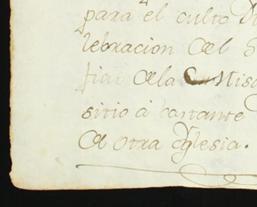 para el culto Di
lebracion del S
fiai dela Misa
sitio à bastante
a otra Yglesia.